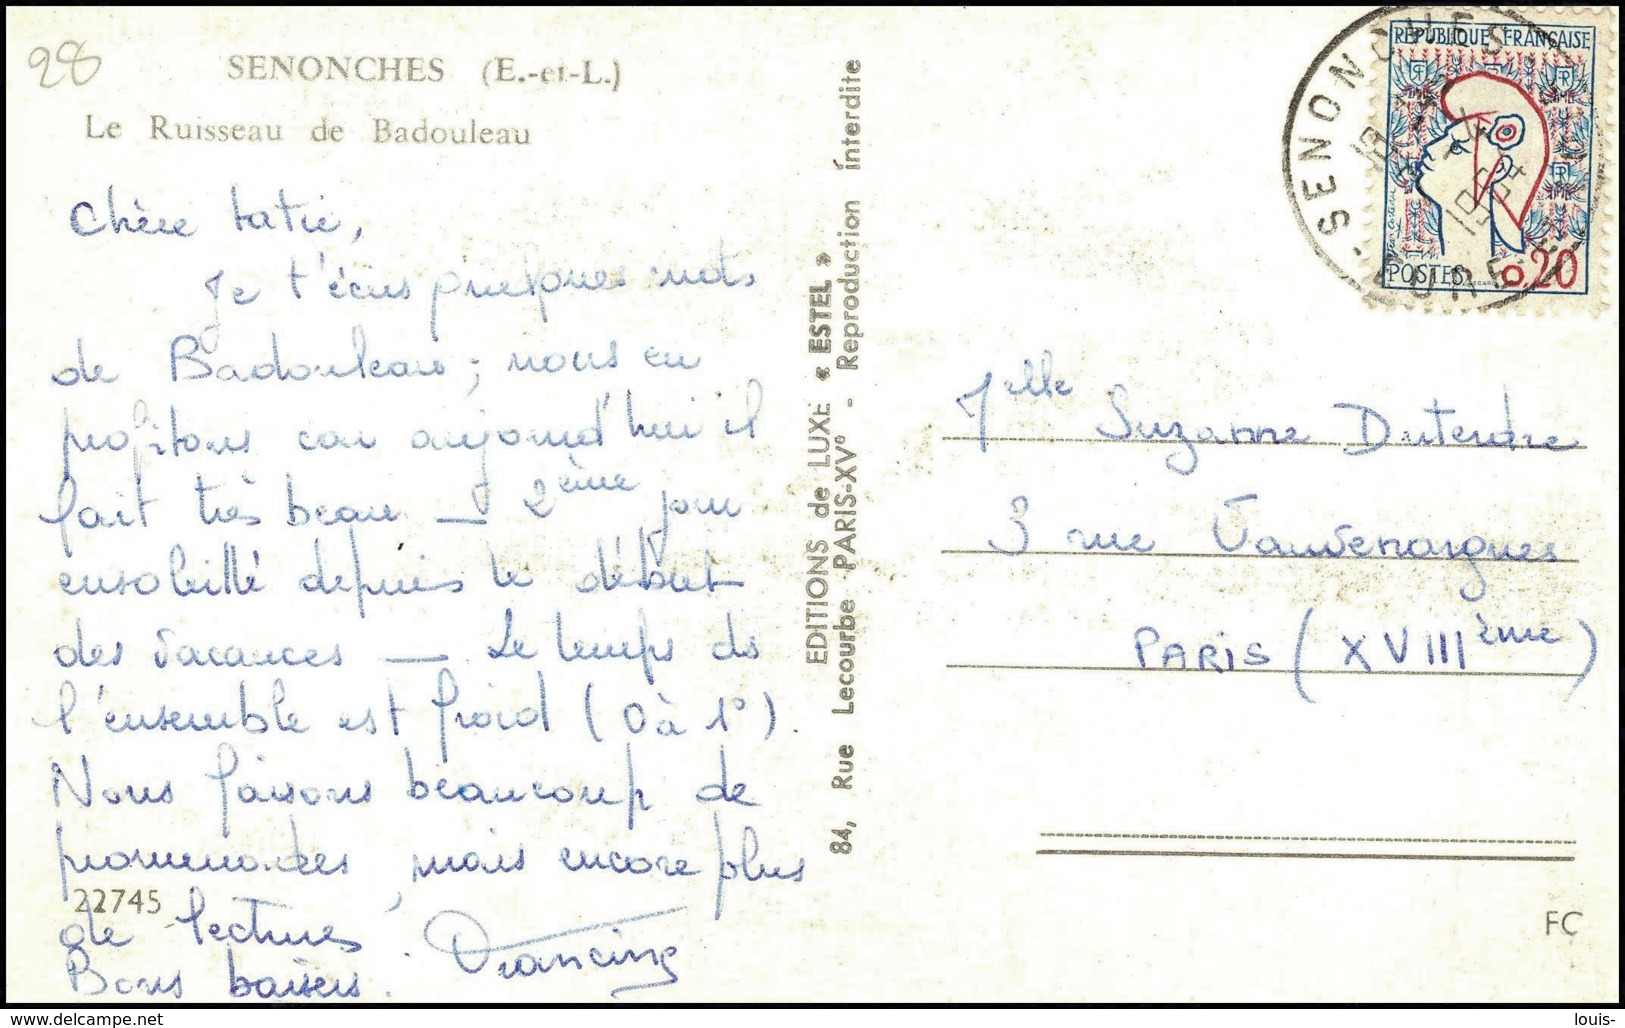 28
SENONCHES (E.-et-L.)
Le Ruisseau de Badouleau
Chère tatie,
Je t'écris quelques mots
de Badouleau ; nous en
profitons car aujourd'hui il
fait très beau — 2ème jour
ensoleillé depuis le début
des vacances — Le temps ds
l'ensemble est froid (0 à 1°).
Nous faisons beaucoup de
promenades, mais encore plus
de lectures
Bons baisers.
22745
EDITIONS de LUXE « ESTEL »
84, Rue Lecourbe PARIS-XVe - Reproduction interdite
SENONCHES
1964
EURE
REPUBLIQUE FRANÇAISE
POSTES 0,20
Melle Suzanne Dutendre
3 rue Vauvenargues
PARIS (XVIIIème)
FC
www.delcampe.net
louis-